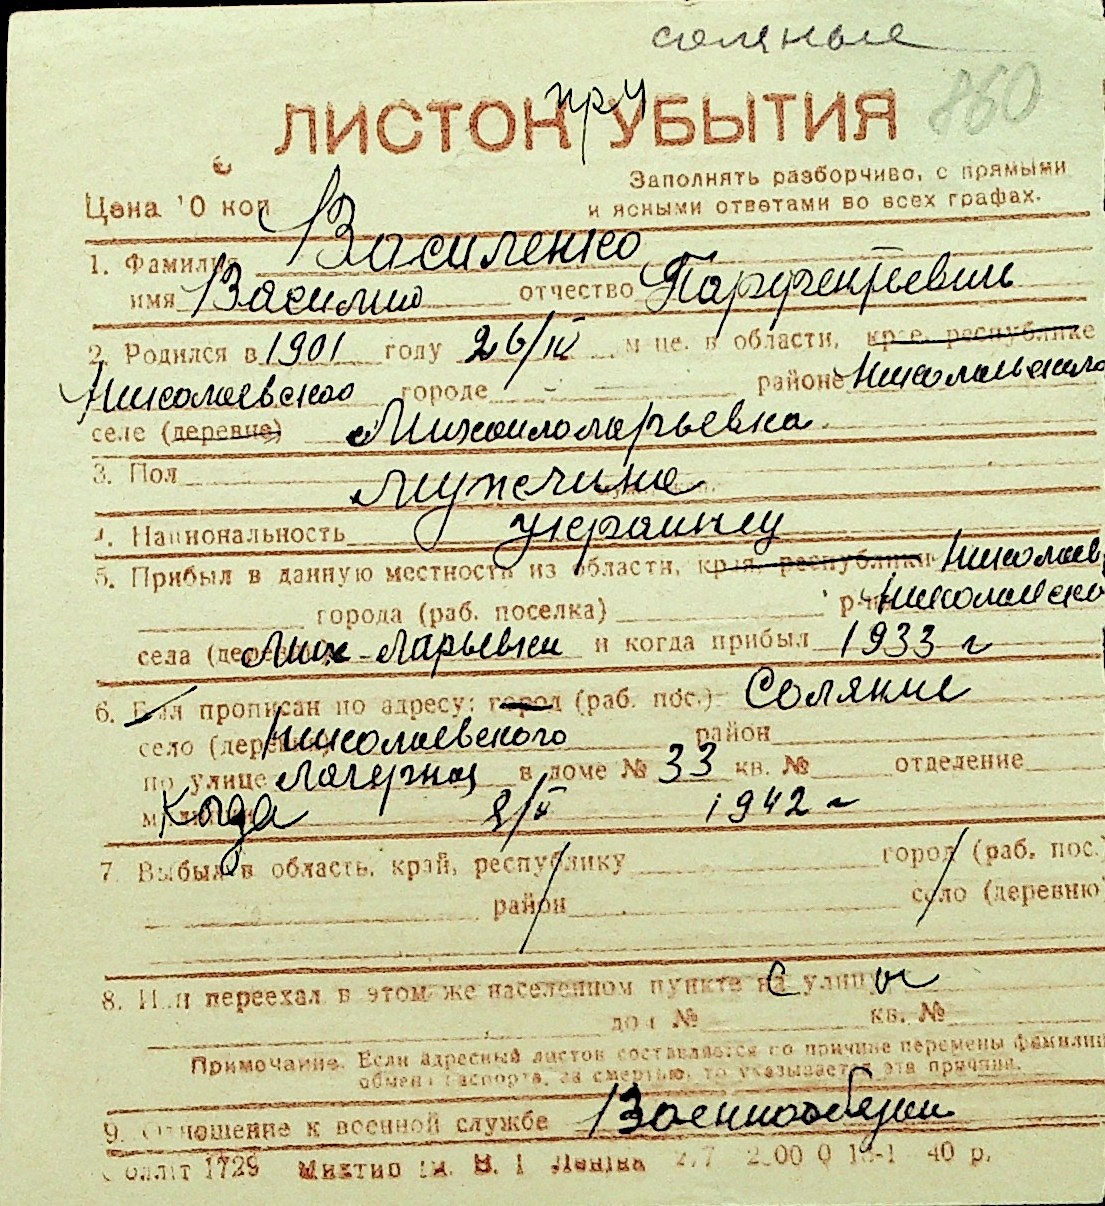 соляные
860
ЛИСТОК при УБЫТИЯ
Заполнять разборчиво, с прямыми
Цена 10 коп
и ясными ответами во всех графах.
1. Фамилия Василенко
имя Василию отчество Парфентьевич
2. Родился в 1901 году 26/IV м-це. в области, крае, республике
Николаевского городе районе Николаевского
селе (деревне) Михайлоларьевка
3. Пол мужчина
4. Национальность украинец
5. Прибыл в данную местность из области, края, республики Николаев
города (раб. поселка) р-на Николаевско
села (деревни) Мих-Ларьевки и когда прибыл 1933 г
6. Был прописан по адресу: город (раб. пос.) Соляние
село (деревня) Николаевского район
по улице Лагерная в доме № 33 кв. № отделение
милиции Когда 8/V 1942 г
7. Выбыл в область, край, республику город (раб. пос.)
район село (деревню)
8. Или переехал в этом же населенном пункте на с улицы
дом № кв. №
Примечание. Если адресный листок составляется по причине перемены фамилии
обмена паспорта, за смертью, то указывается эта причина.
9. Отношение к военной службе Военнообязан
1729 В. І. Леніна 40 р.